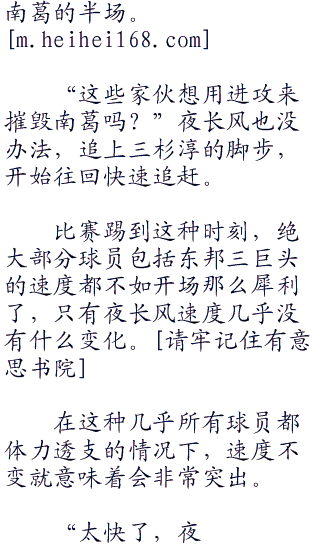 南葛的半场。
[m.heihei168.com]
“这些家伙想用进攻来
摧毁南葛吗？”夜长风也没
办法，追上三杉淳的脚步，
开始往回快速追赶。
比赛踢到这种时刻，绝
大部分球员包括东邦三巨头
的速度都不如开场那么犀利
了，只有夜长风速度几乎没
有什么变化。[请牢记住有意
思书院]
在这种几乎所有球员都
体力透支的情况下，速度不
变就意味着会非常突出。
“太快了，夜